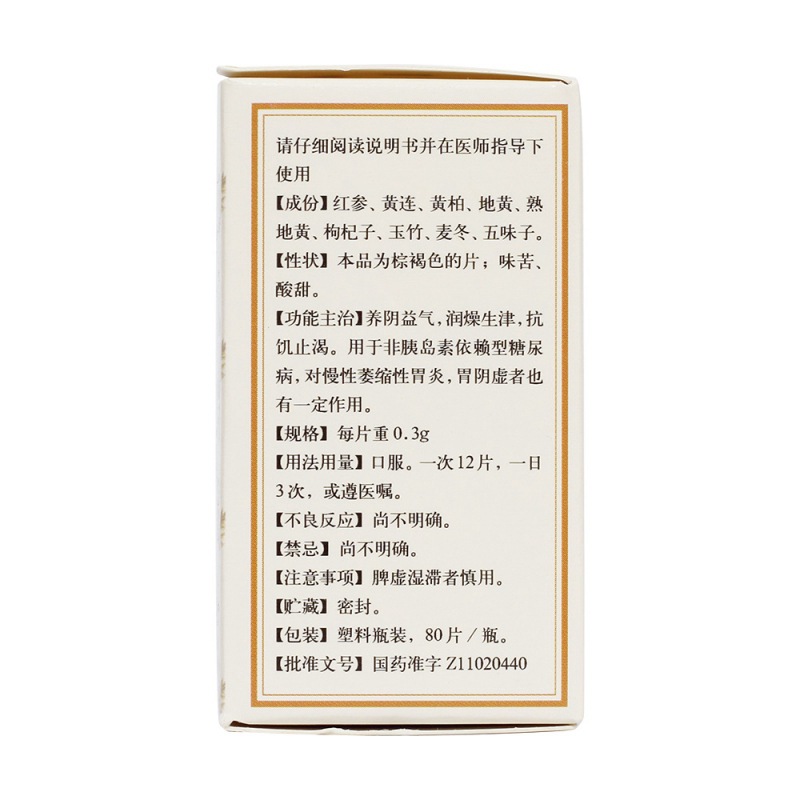 请仔细阅读说明书并在医师指导下
使用
【成份】红参、黄连、黄柏、地黄、熟
地黄、枸杞子、玉竹、麦冬、五味子。
【性状】本品为棕褐色的片；味苦、
酸甜。
【功能主治】养阴益气，润燥生津，抗
饥止渴。用于非胰岛素依赖型糖尿
病，对慢性萎缩性胃炎，胃阴虚者也
有一定作用。
【规格】每片重0.3g
【用法用量】口服。一次12片，一日
3次，或遵医嘱。
【不良反应】尚不明确。
【禁忌】尚不明确。
【注意事项】脾虚湿滞者慎用。
【贮藏】密封。
【包装】塑料瓶装，80片/瓶。
【批准文号】国药准字Z11020440